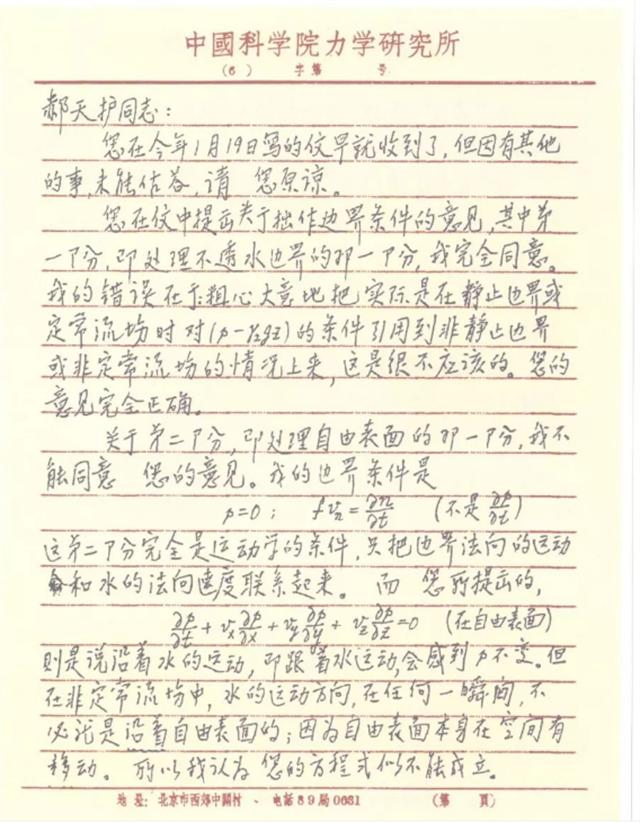 中國科学院力学研究所
(6) 字第 号
郝天护同志：
您在今年1月19日写的信早就收到了，但因有其他
的事，未能作答，请 您原谅。
您在信中提出关于拙作边界条件的意见，其中第
一部分，即处理不透水边界的那一部分，我完全同意。
我的错误在于粗心大意地把实际是在静止边界或
定常流场时对(p-γ₂gz)的条件引用到非静止边界
或非定常流场的情况上来，这是很不应该的。您的
意见完全正确。
关于第二部分，即处理自由表面的那一部分，我不
能同意 您的意见。我的边界条件是
p=0； fvₙ=∂n/∂t (不是∂p/∂t)
这第二部分完全是运动学的条件，只把边界法向的运动
和水的法向速度联系起来。 而 您所提出的，
∂p/∂t+vₓ∂p/∂x+v_y∂p/∂y+v_z∂p/∂z=0 (在自由表面)
则是说沿着水的运动，即跟着水运动，会感到p不变。但
在非定常流场中，水的运动方向，在任何一瞬间，不
必定是沿着自由表面的；因为自由表面本身在空间有
移动。 所以我认为 您的方程式似不能成立。
地址：北京市西郊中關村 · 电話89局0631 (第 頁)